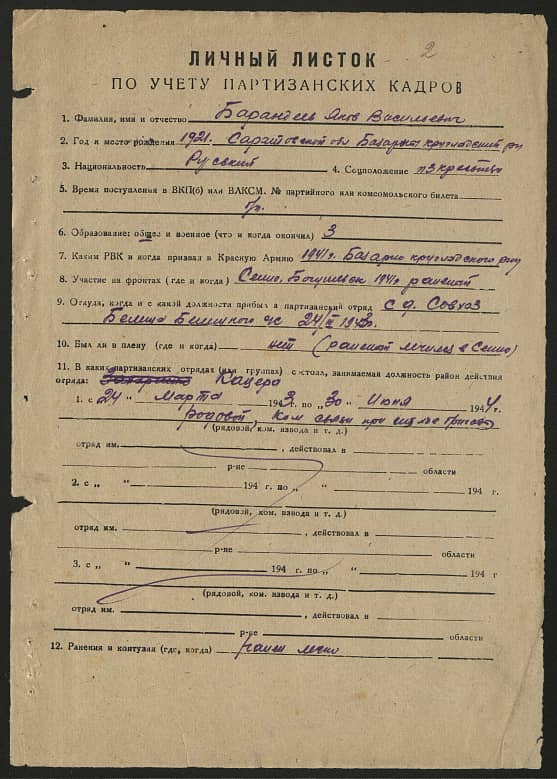 2
ЛИЧНЫЙ ЛИСТОК
ПО УЧЕТУ ПАРТИЗАНСКИХ КАДРОВ
1. Фамилия, имя и отчество Яков Васильевич
2. Год и место рождения 1921. Саратовской обл
3. Национальность Руський 4. Соцположение
5. Время поступления в ВКП(б) или ВЛКСМ. № партийного или комсомольского билета
б/п.
6. Образование: общее и военное (что и когда окончил) 3
7. Каким РВК и когда призван в Красную Армию 1941г.
8. Участие на фронтах (где и когда) Сенно, Богушевск 1941г раненой
9. Откуда, когда и с какой должности прибыл в партизанский отряд с д. Совхоз
24/III 1943г.
10. Был ли в плену (где и когда) нет (раненой лечился в Сенно)
11. В каких партизанских отрядах (или группах) состоял, занимаемая должность район действия
отряда: Кацера
1. с „24“ Марта 1943 г. по „30“ Июня 1944 г.
рядовой,
(рядовой, ком. взвода и т. д.)
отряд им. , действовал в
р-не области
2. с „ “ 194 г. по „ “ 194 г.
(рядовой, ком. взвода и т. д.)
отряд им. , действовал в
р-не области
3. с „ “ 194 г. по „ “ 194 г
(рядовой, ком. взвода и т. д.)
отряд им. , действовал в
р-не области
12. Ранения и контузия (где, когда) ранен легко